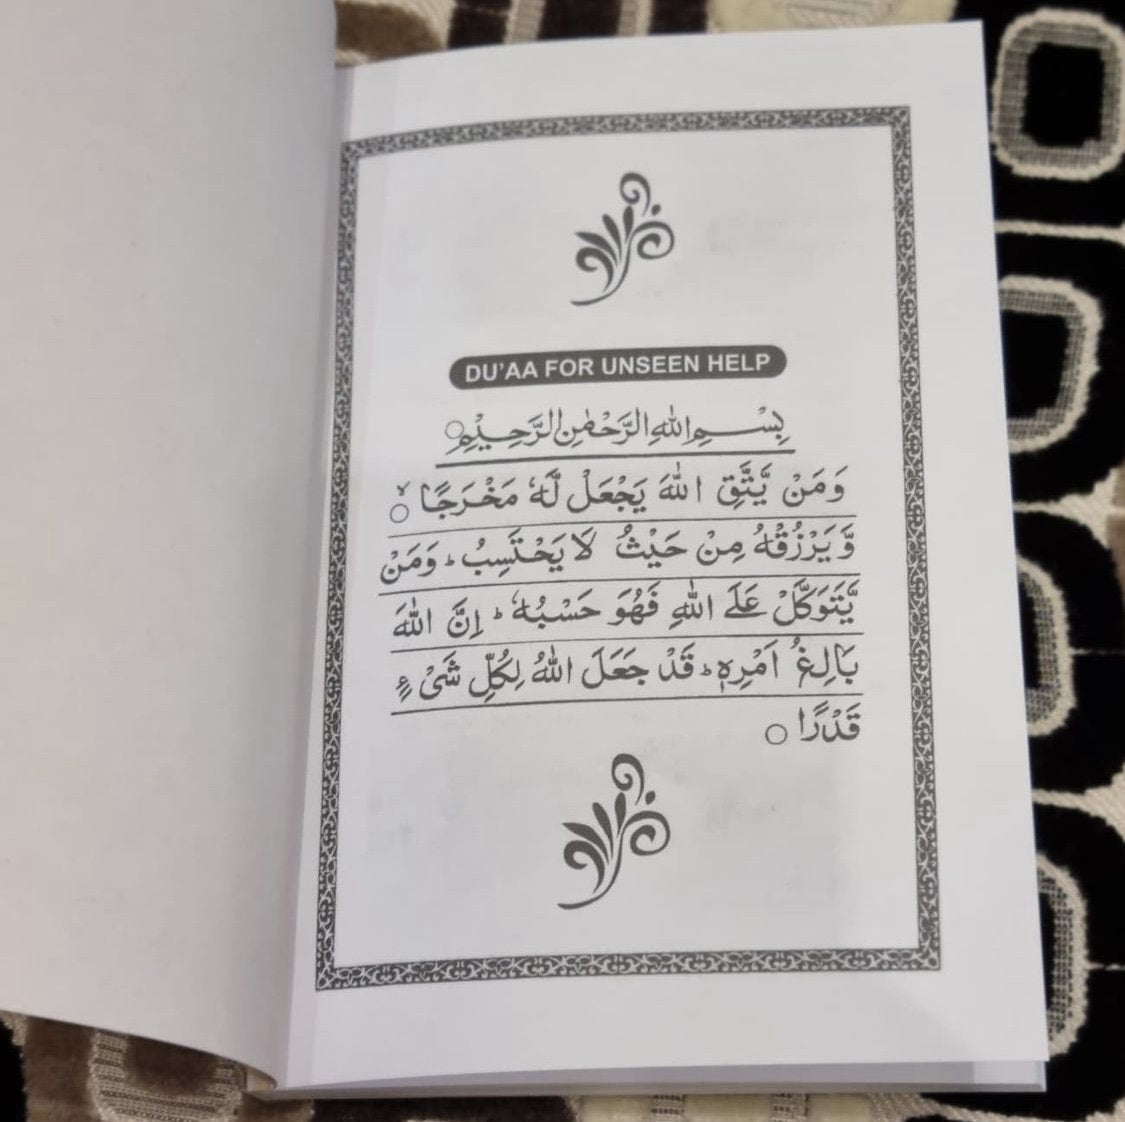 DU'AA FOR UNSEEN HELP
بِسْمِ اللهِ الرَّحْمٰنِ الرَّحِيْمِ○
وَمَنْ يَّتَّقِ اللهَ يَجْعَلْ لَّهٗ مَخْرَجًا ○ۙ
وَّيَرْزُقْهُ مِنْ حَيْثُ لَا يَحْتَسِبُ ؕ وَمَنْ
يَّتَوَكَّلْ عَلَى اللهِ فَهُوَ حَسْبُهٗ ؕ اِنَّ اللهَ
بَالِغُ اَمْرِهٖ ؕ قَدْ جَعَلَ اللهُ لِكُلِّ شَىْءٍ
قَدْرًا ○